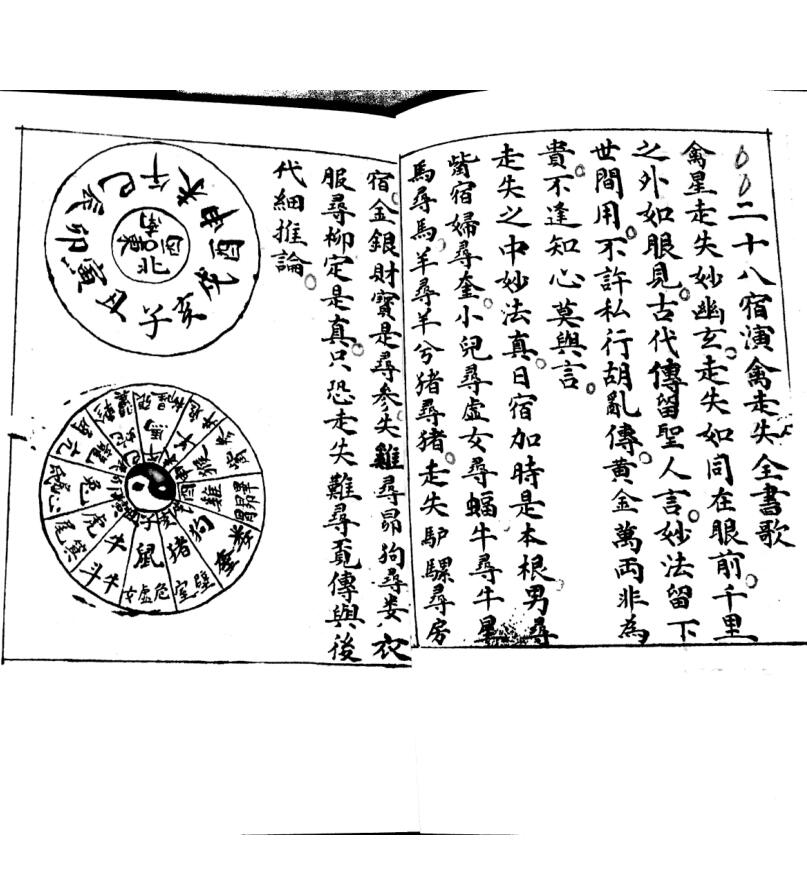 二十八宿演禽走失全書歌
禽星走失妙幽玄。走失如同在眼前。千里
之外如眼見。古代傳留聖人言。妙法留下
世間用。不許私行胡亂傳。黃金萬両非為
貴。不逢知心莫與言。
走失之中妙法真。日宿加時是本根。男尋
觜宿婦尋奎。小兒尋虛女尋蝠牛尋牛星
馬尋馬。羊尋羊兮猪尋猪。走失馿騾尋房
宿。金銀財寶是尋參。失雞尋昴狗尋娄。衣
服尋柳定是真。只恐走失難尋覓傳與後
代細推論。
子丑寅卯辰巳午未申酉戌亥
南西北東
鼠牛虎兔龍
馬
雞狗猪
女虛危
斗牛
尾箕
室壁